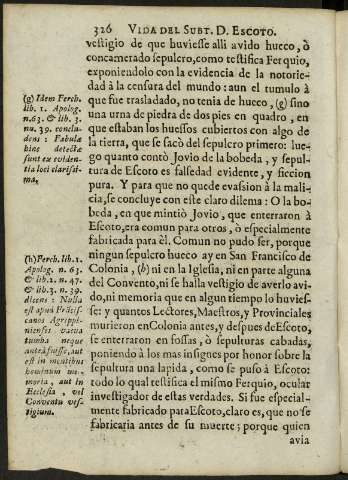 326 VIDA DEL SUBT. D. ESCOTO.
vestigio de que huviesse alli avido hueco, ò
concamerado sepulcro, como testifica Ferquio,
exponiendolo con la evidencia de la notorie-
dad à la censura del mundo: aun el tumulo à
que fue trasladado, no tenia de hueco, (g) sino
una urna de piedra de dos pies en quadro, en
que estaban los huessos cubiertos con algo de
la tierra, que se sacò del sepulcro primero: lue-
go quanto contò Jovio de la bobeda, y sepul-
tura de Escoto es falsedad evidente, y ficcion
pura. Y para que no quede evassion à la mali-
cia, se concluye con este claro dilema: O la bo-
beda, en que mintiò Jovio, que enterraron à
Escoto, era comun para otros, ò especialmente
fabricada para èl. Comun no pudo ser, porque
ningun sepulcro hueco ay en San Francisco de
Colonia, (h) ni en la Iglesia, ni en parte alguna
del Convento, ni se halla vestigio de averlo avi-
do, ni memoria que en algun tiempo lo huvies-
se: y quantos Lectores, Maestros, y Provinciales
murieron en Colonia antes, y despues de Escoto,
se enterraron en fossas, ò sepulturas cabadas,
poniendo à los mas insignes por honor sobre la
sepultura una lapida, como se puso à Escoto:
todo lo qual testifica el mismo Ferquio, ocular
investigador de estas verdades. Si fue especial-
mente fabricado para Escoto, claro es, que no se
fabricaria antes de su muerte; porque quien
avia
(g) Idem Ferch.
lib. 1. Apolog.
n. 63. & lib. 3.
nu. 39. conclu-
dens: Fabulæ
hinc detectæ
sunt ex eviden-
tia loci clarissi-
ma.
(h) Ferch. lib. 1.
Apolog. n. 63.
& lib. 2. n. 47.
& lib. 3. n. 39.
dicens: Nulla
est apud Francis-
canos Agrippi-
nienses vacua
tumba neque
antea fuisse, aut
est in mentibus
hominum me-
moria, aut in
Ecclesia, vel
Conventu ves-
tigium.